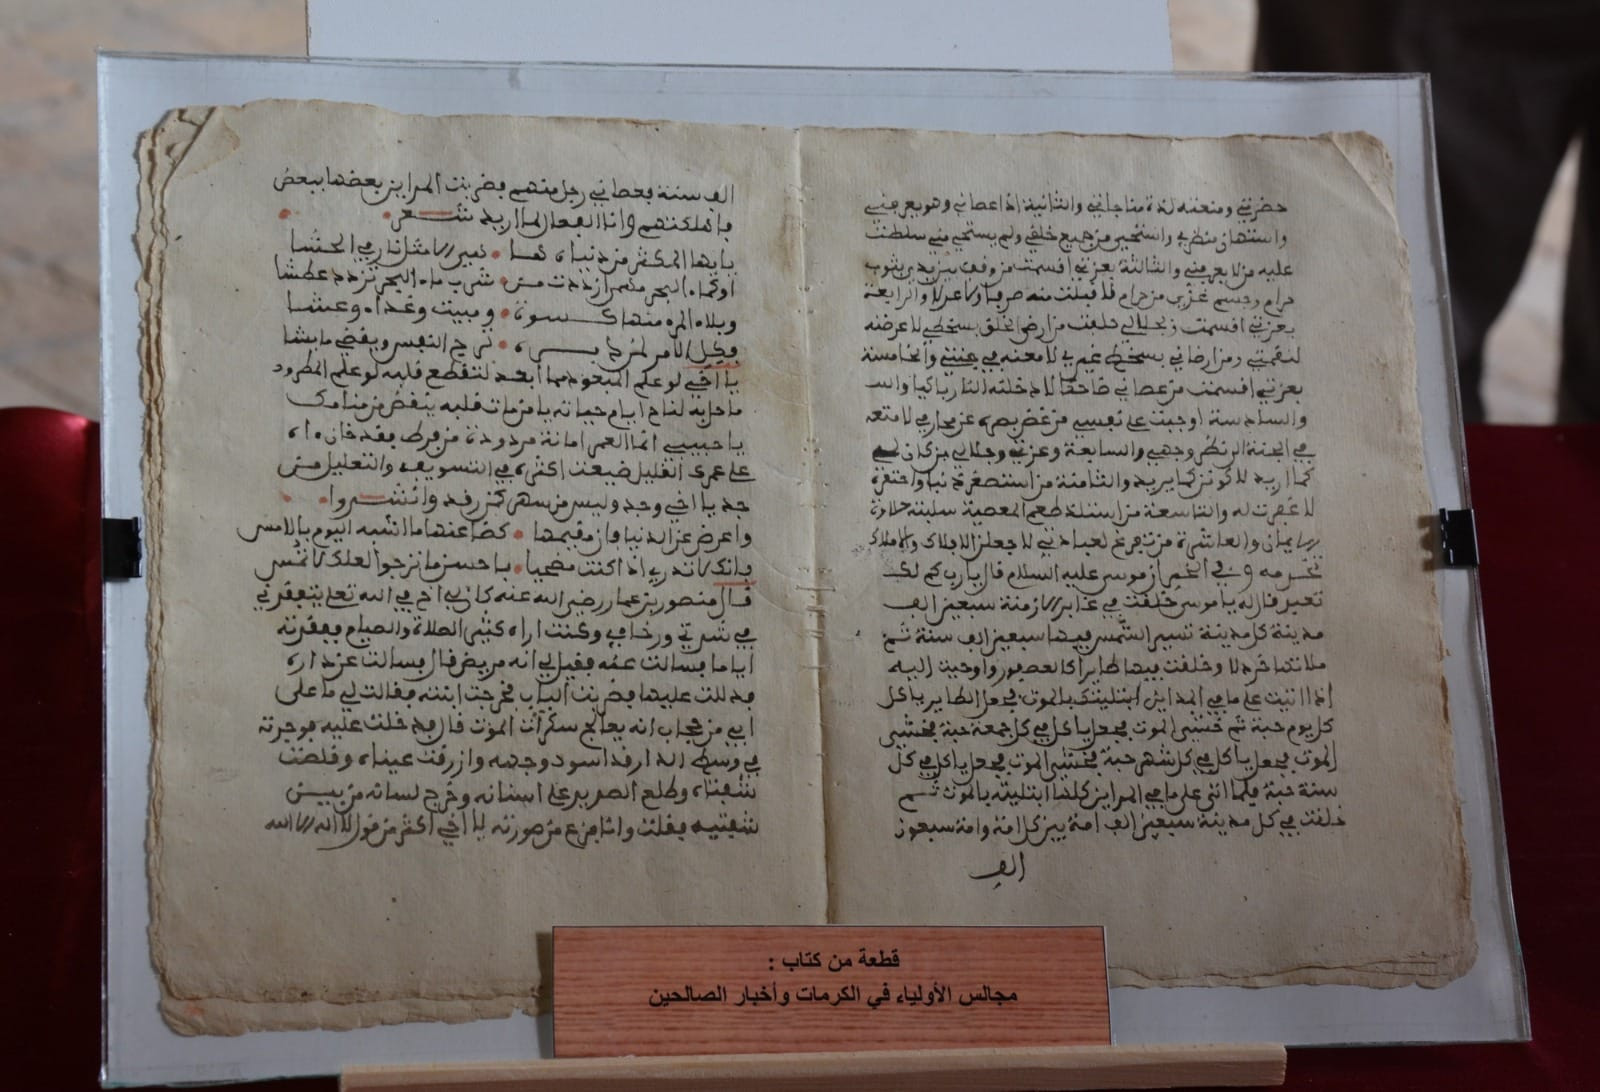 حضرتي ومنعته لذة مناجاتي والثانية اذا عصاني وهو يعرفني
واستهان بنظري واستحيى من جميع خلقي ولم يستحي مني سلطت
عليه من لا يعرفني والثالثة بعزتي اقسمت من وقف بين يدي بثوب
حرام وجسم غذي من حرام لا قبلت منه صرفا ولا عدلا والرابعة
بعزتي اقسمت وجلالي حلفت من ارضى الخلق بسخطي لا عرضنه
لنقمتي ومن ارضاني بسخط غيري لامعنه في جنتي والخامسة
بعزتي اقسمت من عصاني ضاحكا لا دخلنه النار باكيا
والسادسة اوجبت على نفسي من غض بصره عن محارمي لامتعه
في الجنة النظر وجهي والسابعة وعزتي وجلالي من كان لي
كما اريد لاكونن كما يريد والثامنة من استصغر ذنبا واحتقره
لا غفرت له والتاسعة من استلذ طعم المعصية سلبته حلاوة
الايمان والعاشرة من تفرغ لعبادتي لاجعلن الافلاك والاملاك
تخدمه وفي الخبر ان موسى عليه السلام قال يا رب كم لك
تعبد قال له يا موسى خلقت في غابر الازمنة سبعين الف
مدينة كل مدينة تسير الشمس فيها سبعين الف سنة ثم
ملاتها خردلا وخلقت فيها طايرا كالعصفور واوحيت اليه
اذا اتيت على ما في المداين ابتليتك بالموت فجعل الطاير ياكل
كل يوم حبة ثم خشي الموت فجعل ياكل في كل جمعة حبة فخشي
الموت فجعل ياكل في كل شهر حبة فخشي الموت فجعل ياكل في كل
سنة حبة فلما اتى على ما في المداين كلها ابتليته بالموت ثم
خلقت في كل مدينة سبعين الف امة بين كل امة وامة سبعون
الف
الف سنة فعصاني رجل منهم فضربت المداين بعضها ببعض
فاهلكتهم وانا الفعال لما اريد شعر
يايها المكثر من دنياه كما
او كماء البحر مهما ازددت من شرب ماء البحر تزدد عطشا
وبلاء المرء منها كسوة ومبيت وغداء وعشا
فكل الامر لمن ترج النفس ويقضي ما يشا
يا اخي لو علم المبعود مما ابعد لتقطع قلبه لو علم المطرود
ما حل به لناح ايام حياته يا من مات قلبه
يا حبيبي انما العمر امانة مردودة من فرط فقد خان
على عمري القليل ضيعت اكثره في التسويف والتعليل
جد يا اخي وجد وليس من سهر كمن رقد وانشدوا
واعرض عن الدنيا كضاعنها ما اشبه اليوم بالامس
فانك لا تدري اذا كنت مضحيا باحسن ما ترجوا لعلك لا تمسي
قال منصور بن عمار رضي الله عنه كان لي اخ في الله تعلى يتفقدني
في شدتي ورخائي وكنت اراه كثير الصلاة والصيام ففقدته
اياما فسالت عنه فقيل لي انه مريض قال فسالت عن داره
فدللت عليها فضربت الباب فخرجت ابنته فقالت لي ما على
ابي من حجاب انه يعالج سكرات الموت قال فدخلت عليه فوجدته
في وسط الدار قد اسود وجهه وازرقت عيناه وقلصت
شفتاه وطلع الصرير على اسنانه وخرج لسانه من بين
شفتيه فقلت وانا جزع من صورته يا اخي اكثر من قول لا اله الا الله
قطعة من كتاب :
مجالس الأولياء في الكرمات وأخبار الصالحين